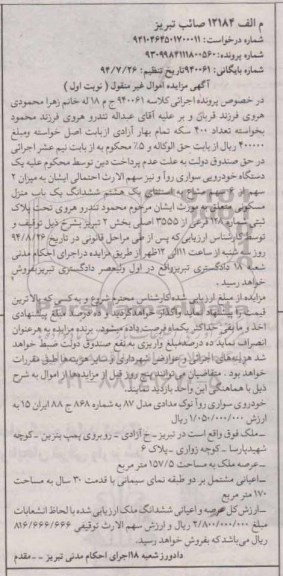 م الف ۱۲۱۸۴ صائب تبریز
شماره درخواست: ۹۳۱۰۴۶۴۵۰۱۷۰۰۰۱۱
شماره پرونده: ۹۳۰۹۹۸۴۱۱۱۸۰۰۵۶۰
شماره بایگانی: ۹۴۰۰۶۱ تاریخ تنظیم: ۹۴/۷/۲۶
آگهی مزایده اموال غیر منقول ( نوبت اول )
در خصوص پرونده اجرائی کلاسه ۹۴۰۰۶۱ ج م ۱۸ له خانم زهرا محمودی
هروی فرزند قربان و بر علیه آقای عبداله تندرو هروی فرزند محمود
بخواسته تعداد ۴۰۰ سکه تمام بهار آزادی از بابت اصل خواسته ومبلغ
۴۰۰۰۰۰ ریال از بابت حق الوکاله و ۵٪ محکوم به از بابت نیم عشر اجرائی
در حق صندوق دولت به علت عدم پرداخت دین توسط محکوم علیه یک
دستگاه خودرویی سواری روآ و نیز سهم الارث احتمالی ایشان به میزان ۲
سهم از سهم مشاع به استثنای یک هشتم ششدانگ یک باب منزل
مسکونی متعلق به مورث ایشان مرحوم محمود تندرو هروی تحت پلاک
ثبتی بشماره ۱۲۸ فرعی از ۳۵۵۵ اصلی بخش ۲ تبریز بشرح ذیل توقیف و
توسط کارشناس ارزیابی که پس از طی مراحل قانونی در تاریخ ۹۴/۸/۲۶
روز سه شنبه از ساعت ۱۱ الی ۱۲ ظهر از طریق مزایده در اجرای احکام مدنی
شعبه ۱۸ دادگستری تبریز واقع در اول ولیعصر دادگستری تبریز بفروش
خواهد رسید .
مزایده از مبلغ ارزیابی شده کارشناس محترم شروع و به کسی که بالاترین
قیمت را پیشنهاد نماید واگذار خواهد گردید و ده درصد مبلغ پیشنهادی
اخذ و مابقی حداکثر یکماه فرصت داده میشود. برنده مزایده به هر عنوان
انصراف نماید ده درصد مبلغ واریزی به نفع صندوق دولت ضبط خواهد
شد هزینه های اجرائی و عوارض شهرداری و سایر هزینه ها طبق مقررات
خواهد بود . متقاضیان می توانند پنج روز قبل از مزایده ها از اموال به شرح
ذیل با هماهنگی این واحد بازدید نمایند.
خودروی سواری روآ نوک مدادی مدل ۸۷ به شماره ۸۶۸ ج ۸۸ ایران ۱۵ به
ارزش ۱/۰۵۰/۰۰۰/۰۰۰ ریال
ـ ملک فوق واقع است در تبریز ـ خ آزادی ـ روبروی پمپ بنزین ـ کوچه
شهید پارسا ـ کوچه زواری ـ پلاک ۶
ـ عرصه ملک به مساحت ۱۵۷/۵ متر مربع
ـ اعیانی مشتمل بر دو طبقه نمای سیمانی با قدمت ۳۰ سال به مساحت
۱۷۰ متر مربع
ـ ارزش کل عرصه و اعیانی ششدانگ ملک ارزیابی شده با لحاظ انشعابات
مبلغ ۲/۸۰۰/۰۰۰/۰۰۰ ریال و ارزش سهم الارث توقیفی ۸۱۶/۶۶۶/۶۶۶
ریال می باشد که بفروش خواهد رسید.
دادورز شعبه ۱۸ اجرای احکام مدنی تبریز ـ ـ مقدم